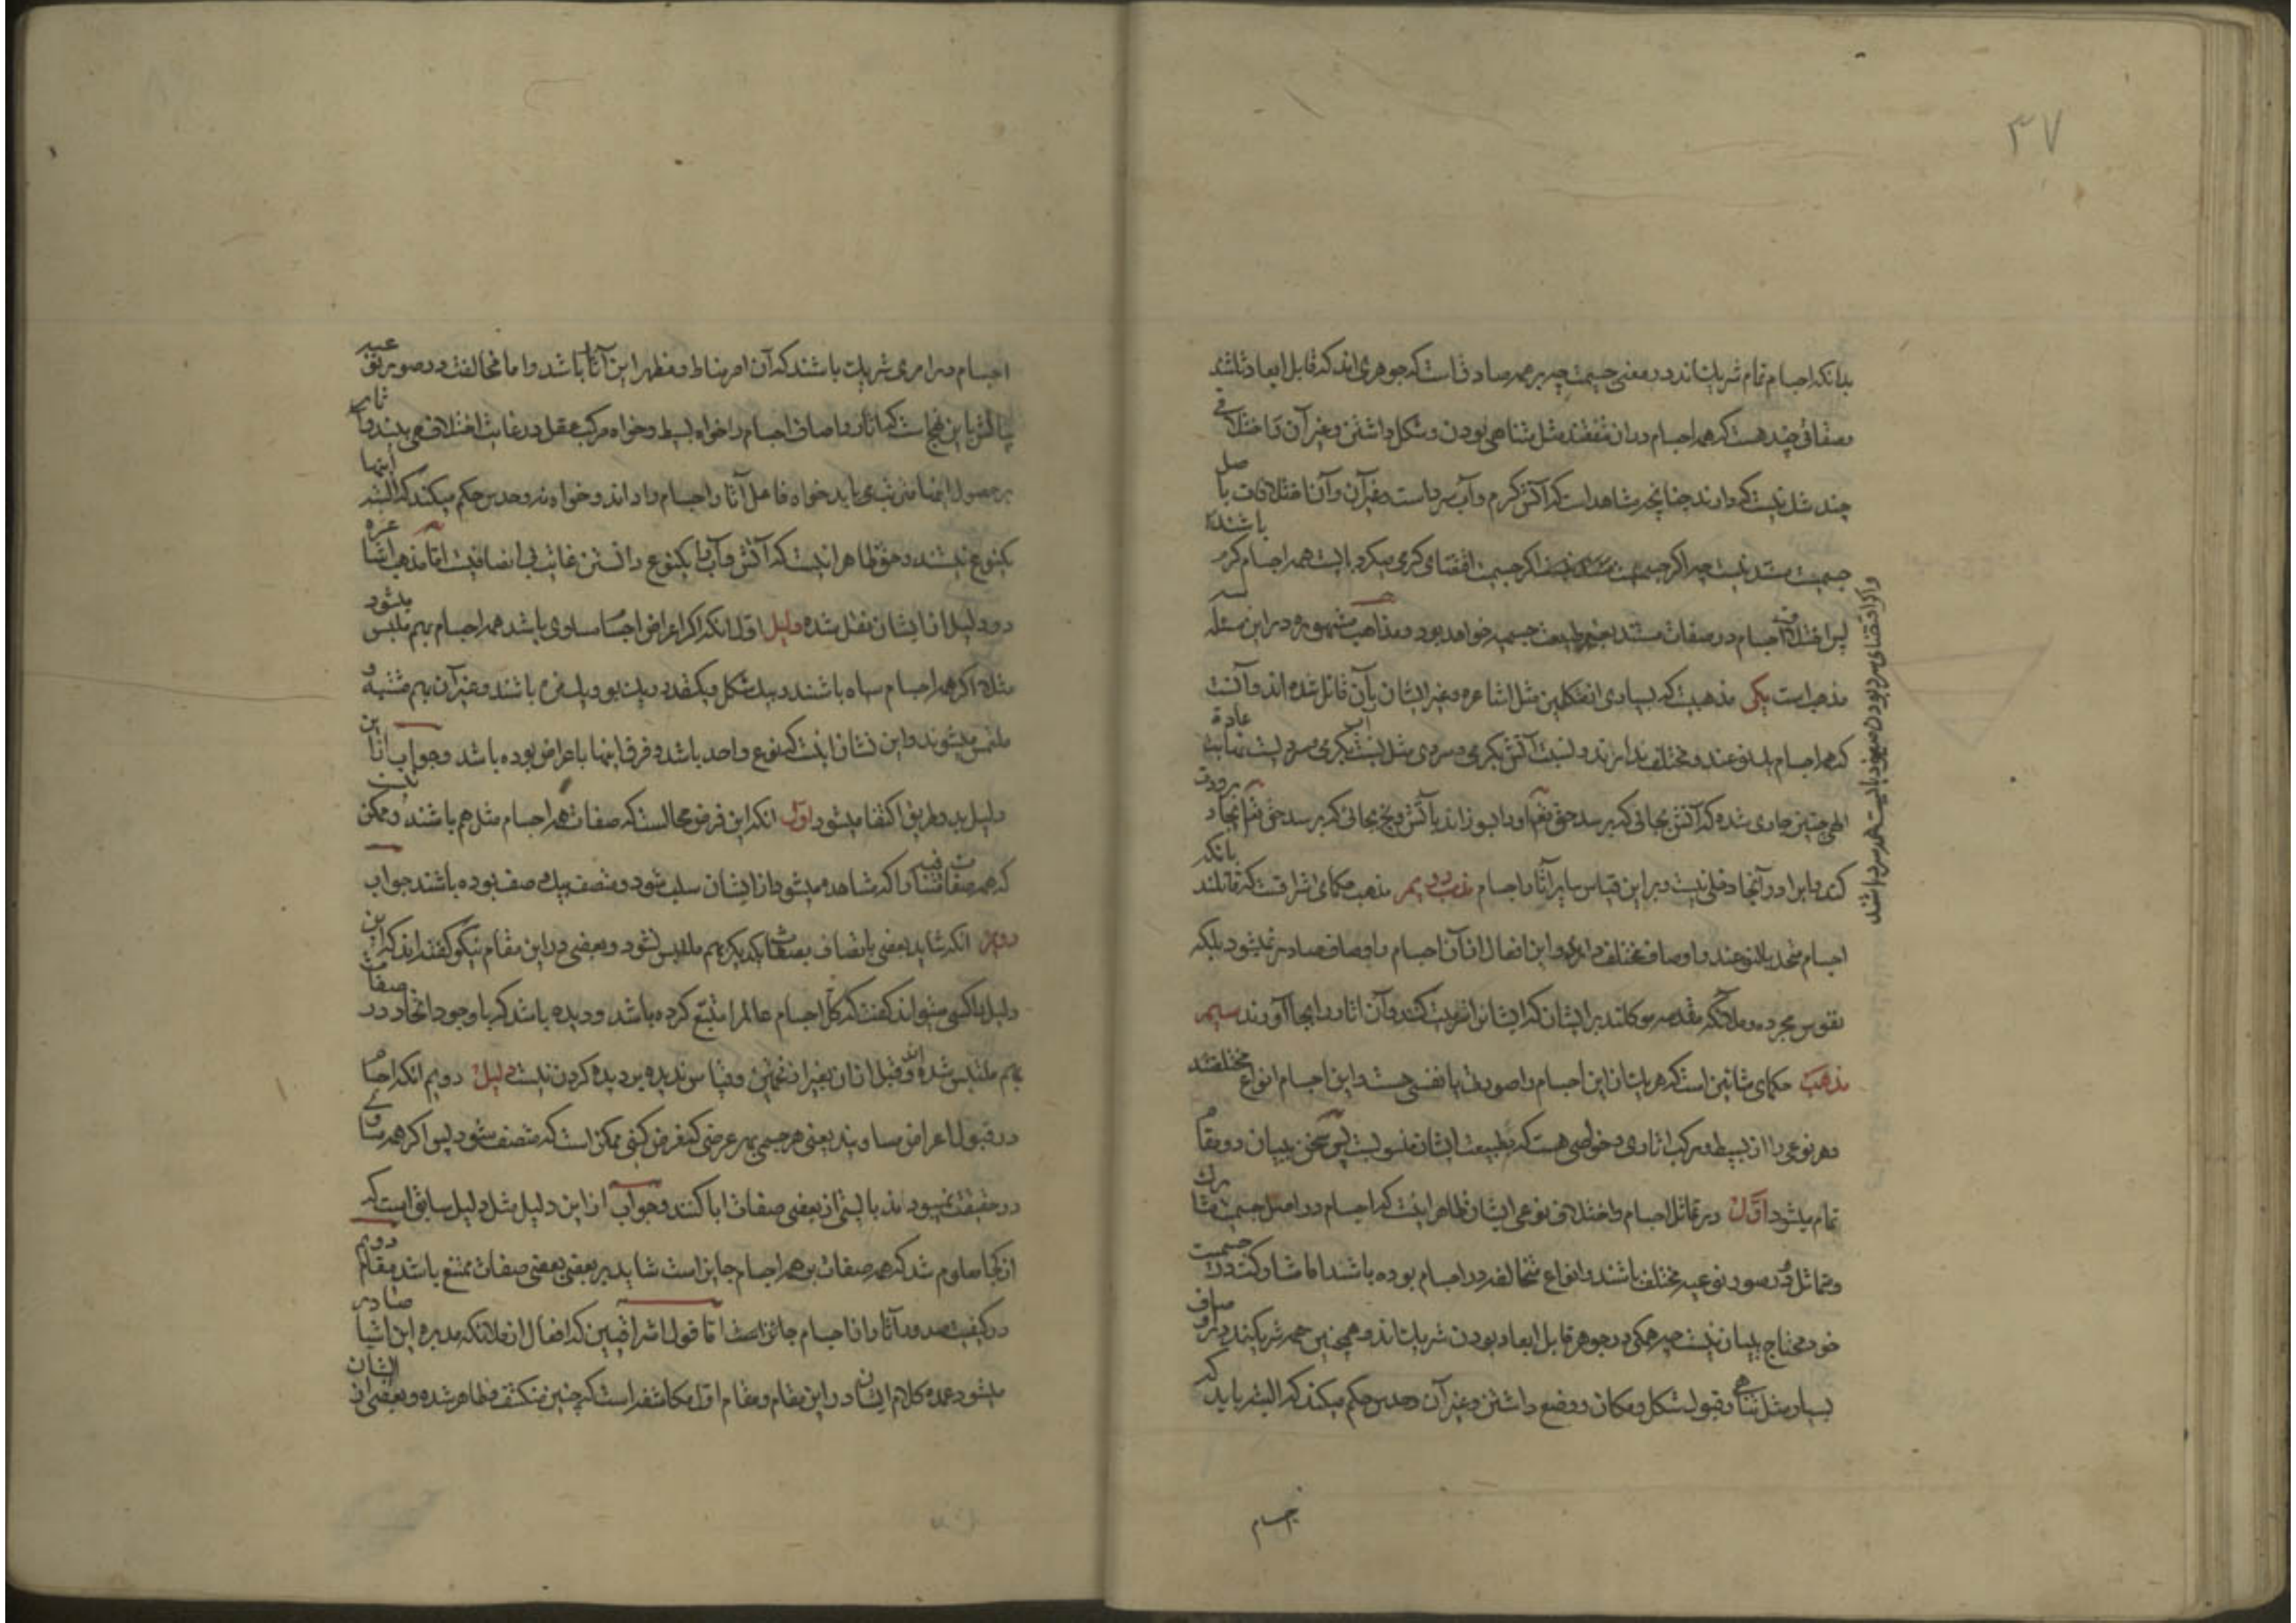 ۳۷
بدانکه اجسام تمام شریک‌اند در معنی جسمیت چه بر همه صادق است که جوهری‌اند که قابل ابعاد ثلثند
و صفاتی چند هست که همه اجسام در آن متفقند مثل متناهی بودن و شکل داشتن و غیر آن و اختلافی
چند مثل نیست که دارند چنانچه مشاهد است که آتش گرم و آب سرد است و غیر آن و آن اختلافات با صل
جسمیت مستند نیست چه اگر جسمیت اقتضای گرمی میکرد بایست همه اجسام گرم باشند
و اگر اقتضای سردی بودن میبود بایست همه سرد باشند
پس اختلاف اجسام در صفات مستند بغیر طبیعت جسمیه خواهد بود و مذاهب مشهوره در این مسئله سه
مذهب است یکی مذهبیست که بسیاری از متکلمین مثل اشاعره و غیر ایشان بآن قائل شده اند و آنست
که همه اجسام یک نوعند و مختلف ندارند و نسبت آتش بگرمی و سردی مثل نسبت آب بگرمی و سردیست نهایت عادة
الهی چنین جاری شده که آتش بجائی که برسد حق تعالی او را بسوزاند یا آتش و یخ بجائی که برسد حق تعالی ایجاد برودت
کند و ابرا در آنجا دخلی نیست و بر این قیاس سایر آثار اجسام مذهب دویم مذهب حکمای اشراقست که قائلند بانکه
اجسام متحد بالنوعند و اوصاف مختلف دارند و این افعال از آن اجسام و اوصاف صادر نمیشود بلکه
نفوس مجرده و ملائکه مقدسه موکلند بر ایشان که ایشان را تربیت کنند و آن آثار را بجا آورند سیم
مذهب حکمای مشائین است که هر یک از این اجسام را صورت یا نفسی هست و این اجسام انواع مختلفند
و هر نوعی را از بسیط و مرکب اثاری و خواصی هست که بطبیعت ایشان منسوبست پس سخن به بیان دو مقام
تمام میشود اول در تماثل اجسام و اختلاف نوعی ایشان ظاهر اینست که اجسام در اصل جسمیت مشارک
و متماثل و در صور نوعیه مختلف باشند و انواع متخالفه در اجسام بوده باشد اما مشارکت در جسمیت
خود محتاج به بیان نیست چه همگی در جوهر قابل ابعاد بودن شریک‌اند و همچنین همه شریکند در اوصاف
بسیار مثل تناهی و قبول شکل و مکان و وضع داشتن و غیر آن و حدس حکم میکند که البته باید که
اجسام
اجسام در امری شریک باشند که آن امر مناط و مظهر این آثار باشد و اما مخالفت در صور نوعیه
پس آنش باین نهج است که آثار و اوصاف اجسام را خواه بسیط و خواه مرکب عقل در غایت اختلاف می بیند و آثار
بر حصول اینها مترتب می باید خواه فاعل آثار اجسام را داند و خواه نه و حدس حکم میکند که البته اینها
یکنوع نیستند و حق ظاهر اینست که آتش و آب را یکنوع دانستن غایت بی انصافیست اما مذهب اشاعره
دو دلیل از ایشان نقل شده دلیل اول انکه اگر اعراض اجسام مساوی باشد همه اجسام بهم ملتبس میشود
مثلا اگر همه اجسام سیاه باشند و بیک شکل و یکقدر و یک بو و یک مزه باشند و غیر آن بهم مشتبه و
ملتبس میشوند و این نشان اینست که نوع واحد باشد و فرق اینها باعراض بوده باشد و جواب از این
دلیل بدو طریق اکتفا میشود اول انکه این فرض محالست که صفات همه اجسام مثل هم باشند و ممکن نیست
که همه صفات متنافیه را که مشاهده میشود از ایشان سلب شود و متصف بیک وصف بوده باشند جواب
دویم انکه شاید بعضی باتصاف بصفات یکدیگر بهم ملتبس نشود و بعضی در این مقام نیکو گفته اند که این
دلیل را کسی میتواند گفت که کل اجسام عالم را تتبع کرده باشد و دیده باشد که با وجود اتحاد در صفات
بهم ملتبس شده اند و قبل از آن بغیر از تخمین و قیاس ندیده بر دیده کردن نیست دلیل دویم انکه اجسام
در قبول اعراض مساویند یعنی هر جسمی بهر عرضی که فرض کنی ممکن است که متصف شود پس اگر همه مساوی
در حقیقت نمیبودند بایستی از بعضی صفات ابا کنند و جواب از این دلیل مثل دلیل سابق است که
از کجا معلوم شد که همه صفات بر همه اجسام جایز است شاید بر بعضی بعضی صفات ممتنع باشد مقام دویم
در کیفیت صدور آثار از اجسام جائز است اما قول اشراقیین که افعال از ملائکه مدبره این اشیا صادر
میشود عمده کلام ایشان در این مقام و مقام اول مکاشفه است که چنین منکشف و ظاهر شده و بعضی از ایشان